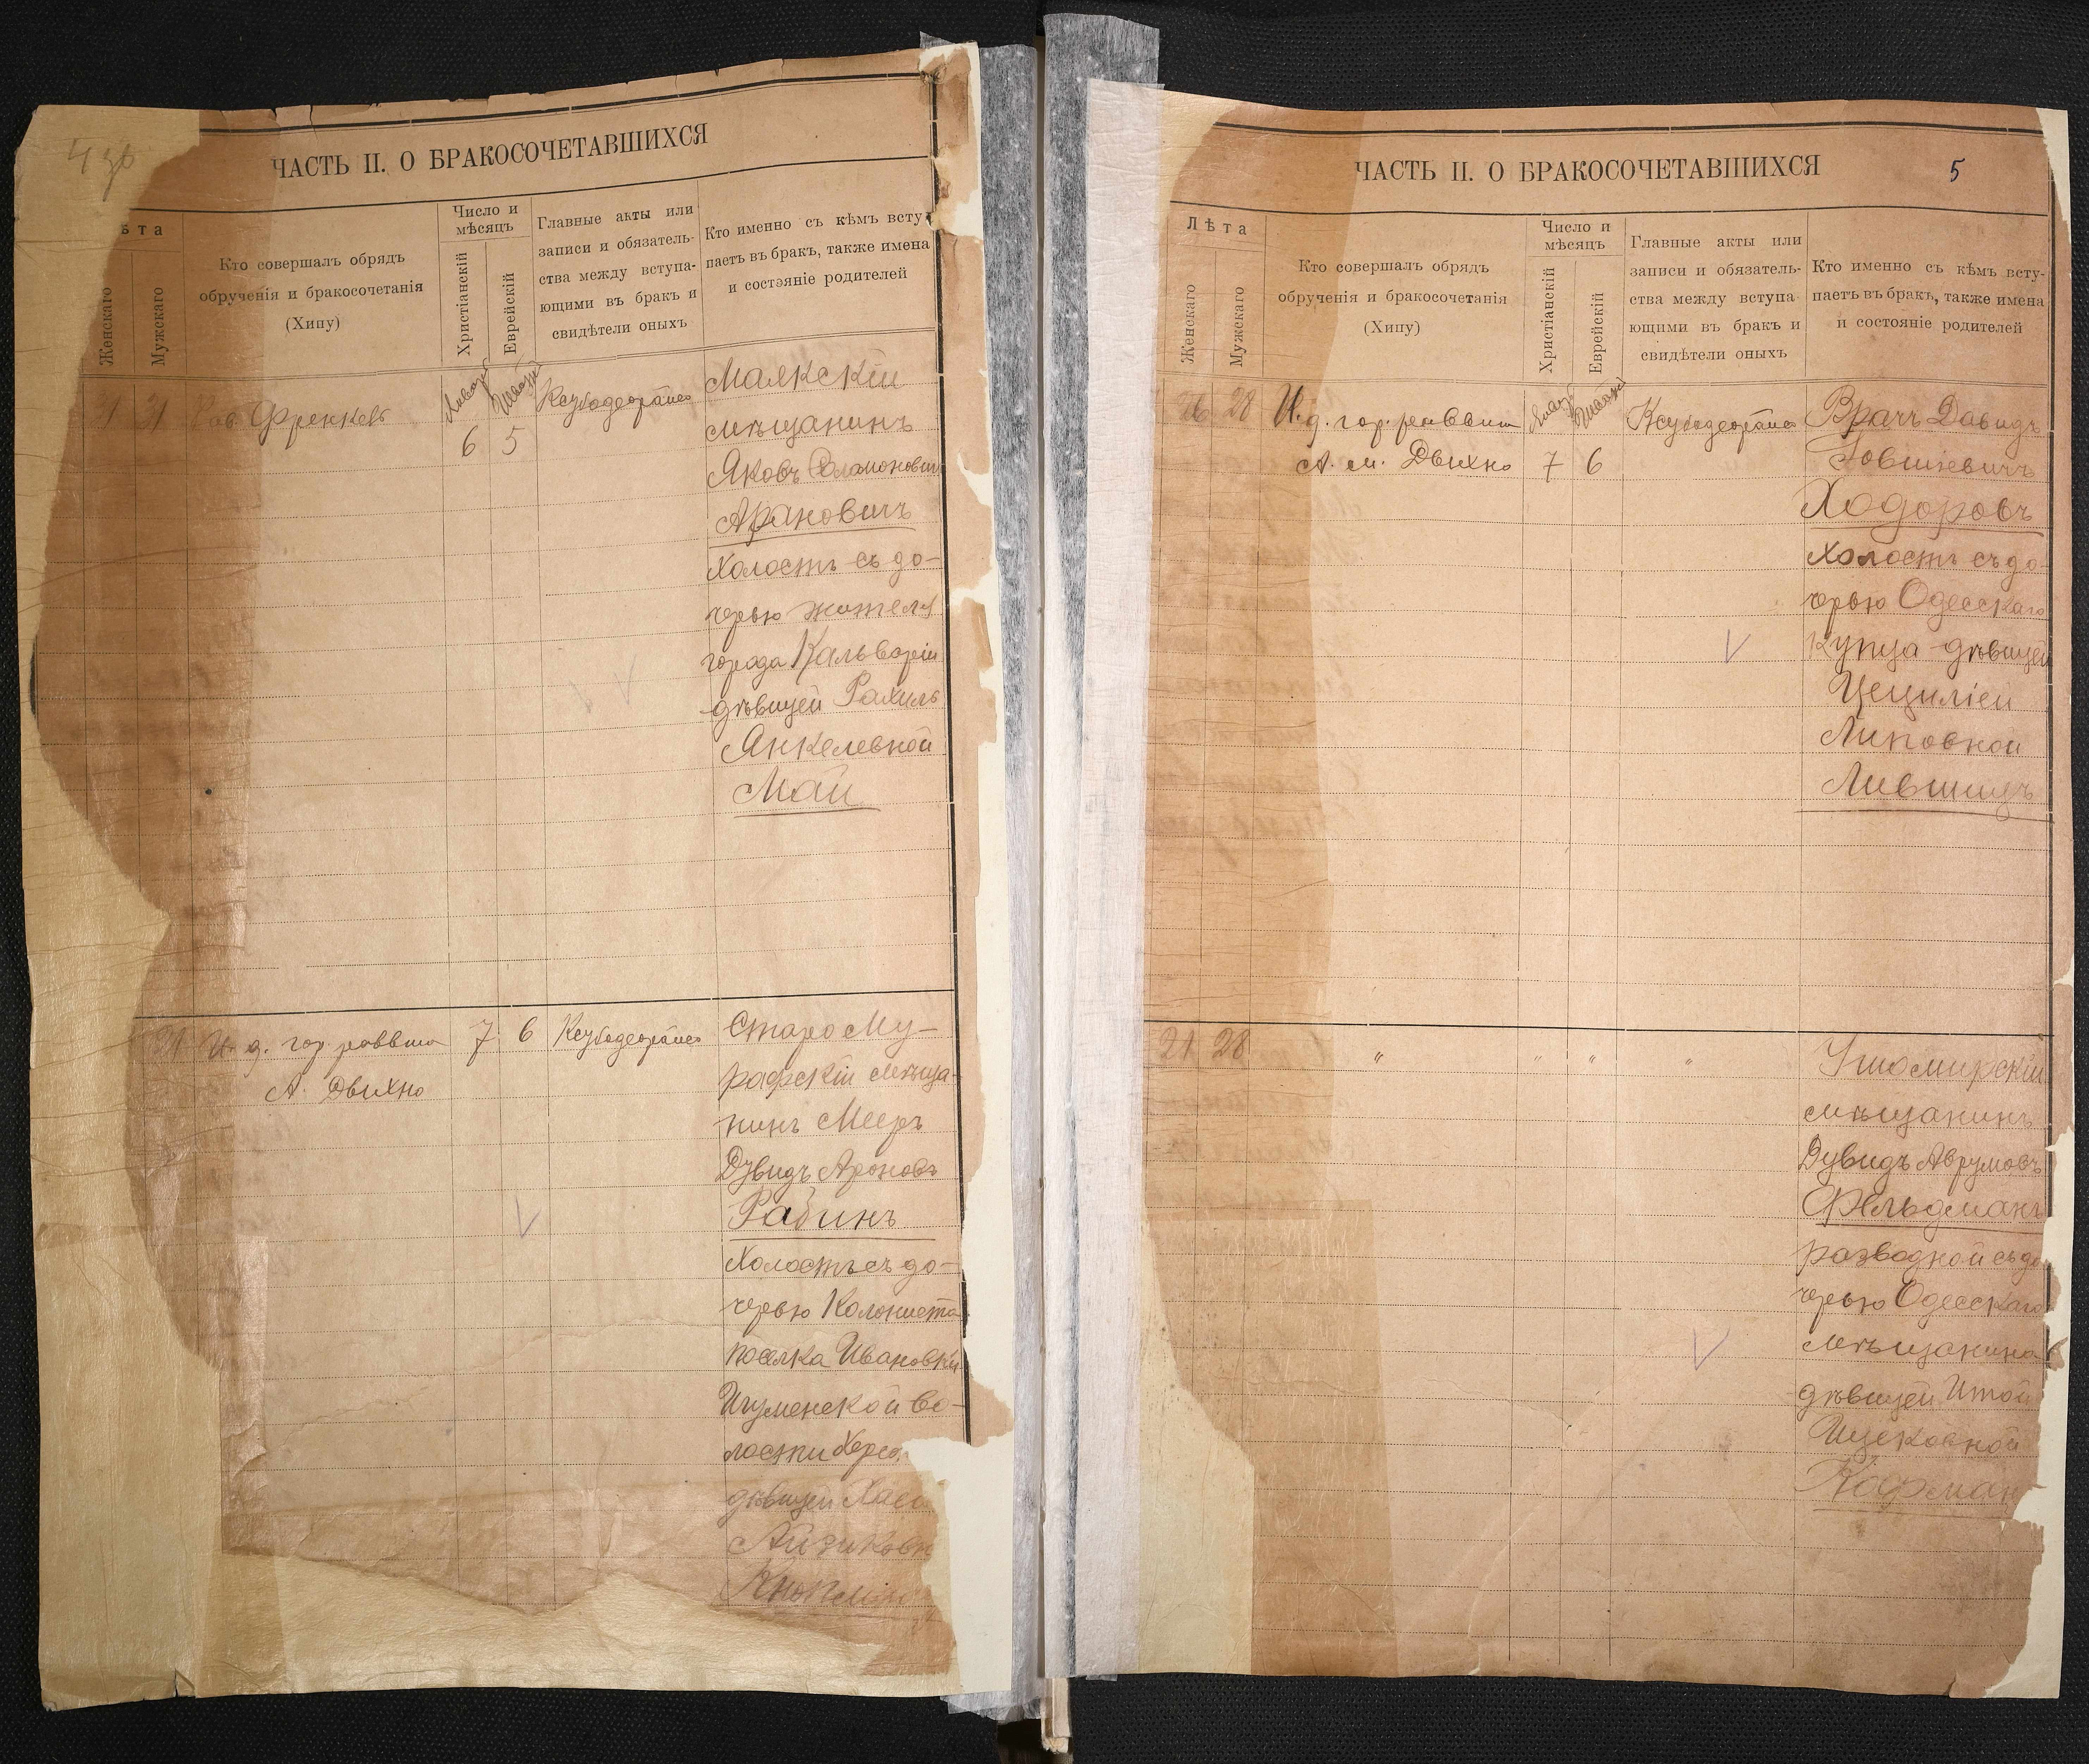 ЧАСТЬ II. О БРАКОСОЧЕТАВШИХСЯ
ѣта
Женскаго
Мужскаго
Кто совершалъ обрядъ
обрученія и бракосочетанія
(Хипу)
Число и
мѣсяцъ
Христіанскій
Еврейскій
Главные акты или
записи и обязатель-
ства между вступа-
ющими въ бракъ и
свидѣтели оныхъ
Кто именно съ кѣмъ всту-
паетъ въ бракъ, также имена
и состояніе родителей
21 Френкель
6 5
Маякскій
мѣщанинъ
Яковъ Соломоновичъ
Арановичъ
Холостъ съ до-
черью жителя
города Кальваріи
дѣвицей Рахиль
Янкелевной
Май
21 И. д. гор. раввина 7 6
А. Двихно
Старо Му-
рафскій мѣща-
нинъ Мееръ
Дувидъ Ароновъ
Рабинъ
Холостъ съ до-
черью Колониста
посёлка Ивановки
Игуменской во-
лости Херс.
дѣвицей
Айзиковн
ЧАСТЬ II. О БРАКОСОЧЕТАВШИХСЯ
5
Лѣта
Женскаго
Мужскаго
Кто совершалъ обрядъ
обрученія и бракосочетанія
(Хипу)
Число и
мѣсяцъ
Христіанскій
Еврейскій
Главные акты или
записи и обязатель-
ства между вступа-
ющими въ бракъ и
свидѣтели оныхъ
Кто именно съ кѣмъ всту-
паетъ въ бракъ, также имена
и состояніе родителей
26 28 И. д. гор. раввина
А. м. Двихно 7 6
Врачъ Давидъ
Іовшіевичъ
Ходоровъ
Холостъ съ до-
черью Одесскаго
Купца дѣвицей
Цециліей
Липовной
Лившицъ
21 28 " " " "
Ушомирскій
мѣщанинъ
Дувидъ Аврумовъ
Фельдманъ
разводной съ до
черью Одесскаго
мѣщанина
дѣвицей Итой
Ицековной
Кофман